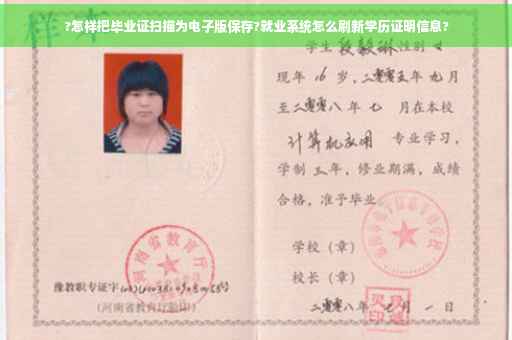 ?怎样把毕业证扫描为电子版保存?就业系统怎么刷新学历证明信息?
样
学生 段毅琳 性别 女
现年 16 岁，二零零五年 九月
至二零零八年 七 月在本校
计算机应用 专业学习，
学制 三 年，修业期满，成绩
合格，准予毕业。
学校（章）
校长（章）
二零零八年 七月 一 日
河南省教育厅
豫教职专证字
（河南省教育厅验印）